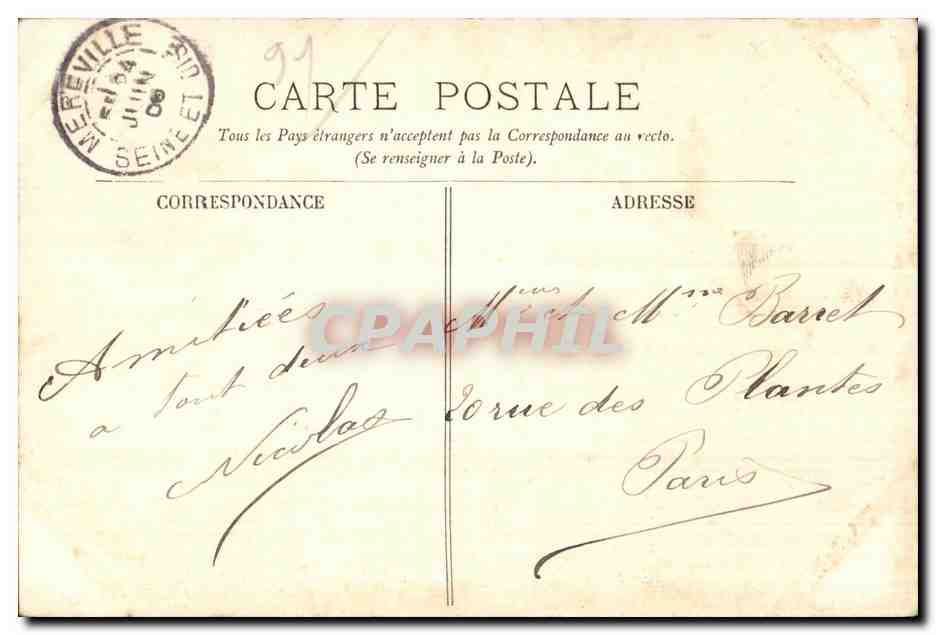 91
MEREVILLE
SEINE ET OIS
JUIN
CARTE POSTALE
Tous les Pays étrangers n'acceptent pas la Correspondance au recto.
(Se renseigner à la Poste).
CORRESPONDANCE
Amitiées
a tout deux
Nicolas
ADRESSE
Mieur et Mme Barret
20 rue des Plantes
Paris
CPAPHIL